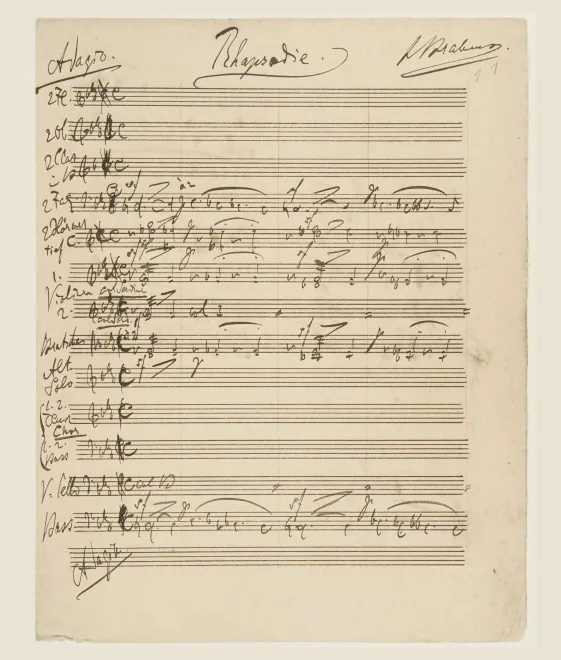 Adagio. Rhapsodie. J. Brahms.
2 Fl.
2 Ob
2 Clar
in B
2 Fag
2 Hörner
tief C.
1.
Violin
2.
Bratsche
Alt
Solo
1. 2.
Tenor
Chor
1. 2.
Bass
V. Cello col B
Bass
Adagio.